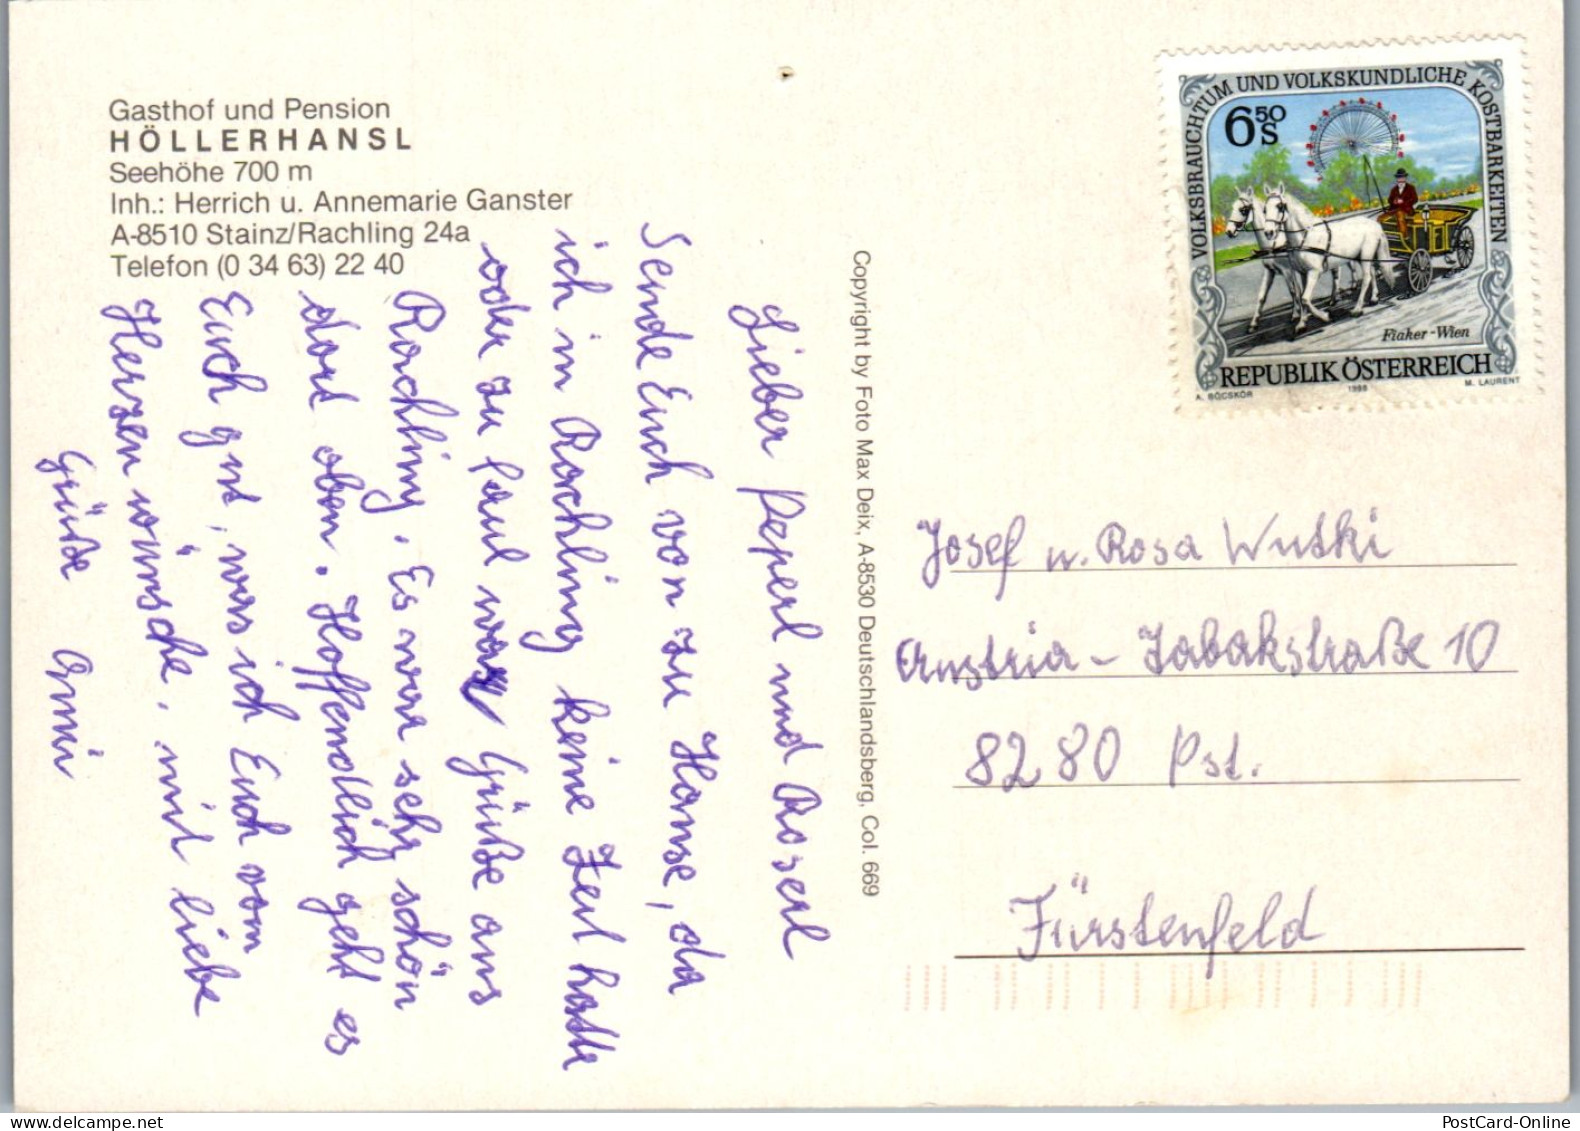 Gasthof und Pension
HÖLLERHANSL
Seehöhe 700 m
Inh.: Herrich u. Annemarie Ganster
A-8510 Stainz/Rachling 24a
Telefon (0 34 63) 22 40
Lieber Peperl und Roserl
Sende Euch von zu Hause, da
ich in Rachling keine Zeit hatte
oder zu faul war Grüße aus
Rachling. Es war sehr schön
dort oben. Hoffendlich geht es
Euch gut, was ich Euch vom
Herzen wünsche. mit liebe
Grüße
Copyright by Foto Max Deix, A-8530 Deutschlandsberg, Col. 669
VOLKSBRAUCHTUM UND VOLKSKUNDLICHE KOSTBARKEITEN
6 50 S
Fiaker - Wien
REPUBLIK ÖSTERREICH
A. BÖCSKÖR 1998 M. LAURENT
Josef u. Rosa Wutki
Austria - Tabakstraße 10
8280 Pst.
Fürstenfeld
PostCard-Online